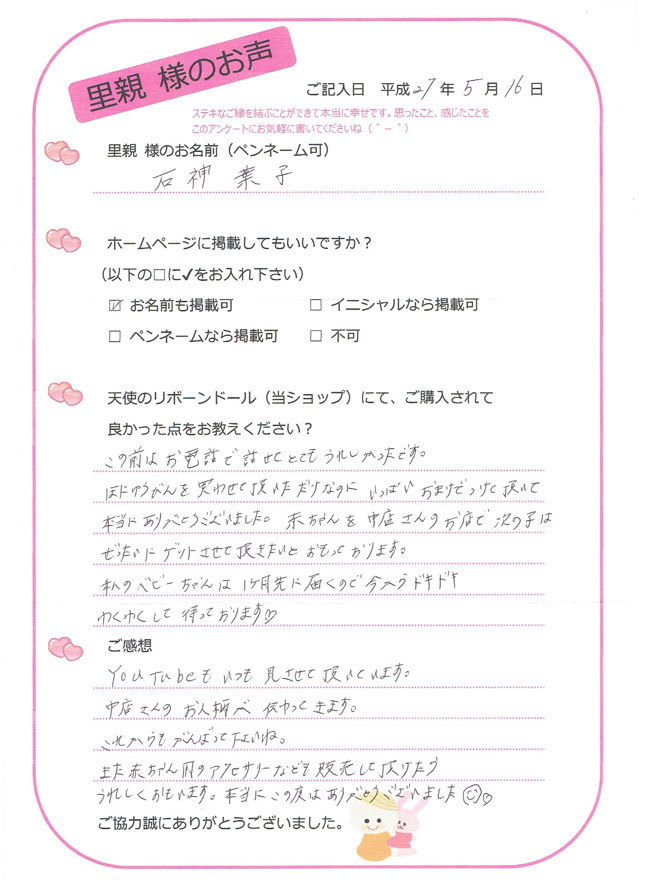 里親 様のお声
ご記入日 平成27年5月16日
ステキなご縁を結ぶことができて本当に幸せです。思ったこと、感じたことを
このアンケートにお気軽に書いてくださいね（＾－＾）
里親 様のお名前（ペンネーム可）
石神 葉子
ホームページに掲載してもいいですか？
（以下の□に✓をお入れ下さい）
☑ お名前も掲載可 □ イニシャルなら掲載可
□ ペンネームなら掲載可 □ 不可
天使のリボーンドール（当ショップ）にて、ご購入されて
良かった点をお教えください？
この前はお電話で話せてとてもうれしかったです。
ほにゅうびんを買わせて頂いただけなのに いっぱい おまけでつけて頂いて
本当にありがとうございました。 赤ちゃんを中店さんのお店で次の子は
ぜったいにゲットさせて頂きたいとおもっております。
私のベビーちゃんは 1ヶ月先に届くので今からドキドキ
わくわくして 待っております♡
ご感想
YouTubeもいつも見させて頂いています。
中店さんの お人柄が 伝わってきます。
これからもがんばって下さいね。
また赤ちゃん用のアクセサリーなども販売して頂けたら
うれしくおもいます。本当にこの度はありがとうございました☺♡
ご協力誠にありがとうございました。